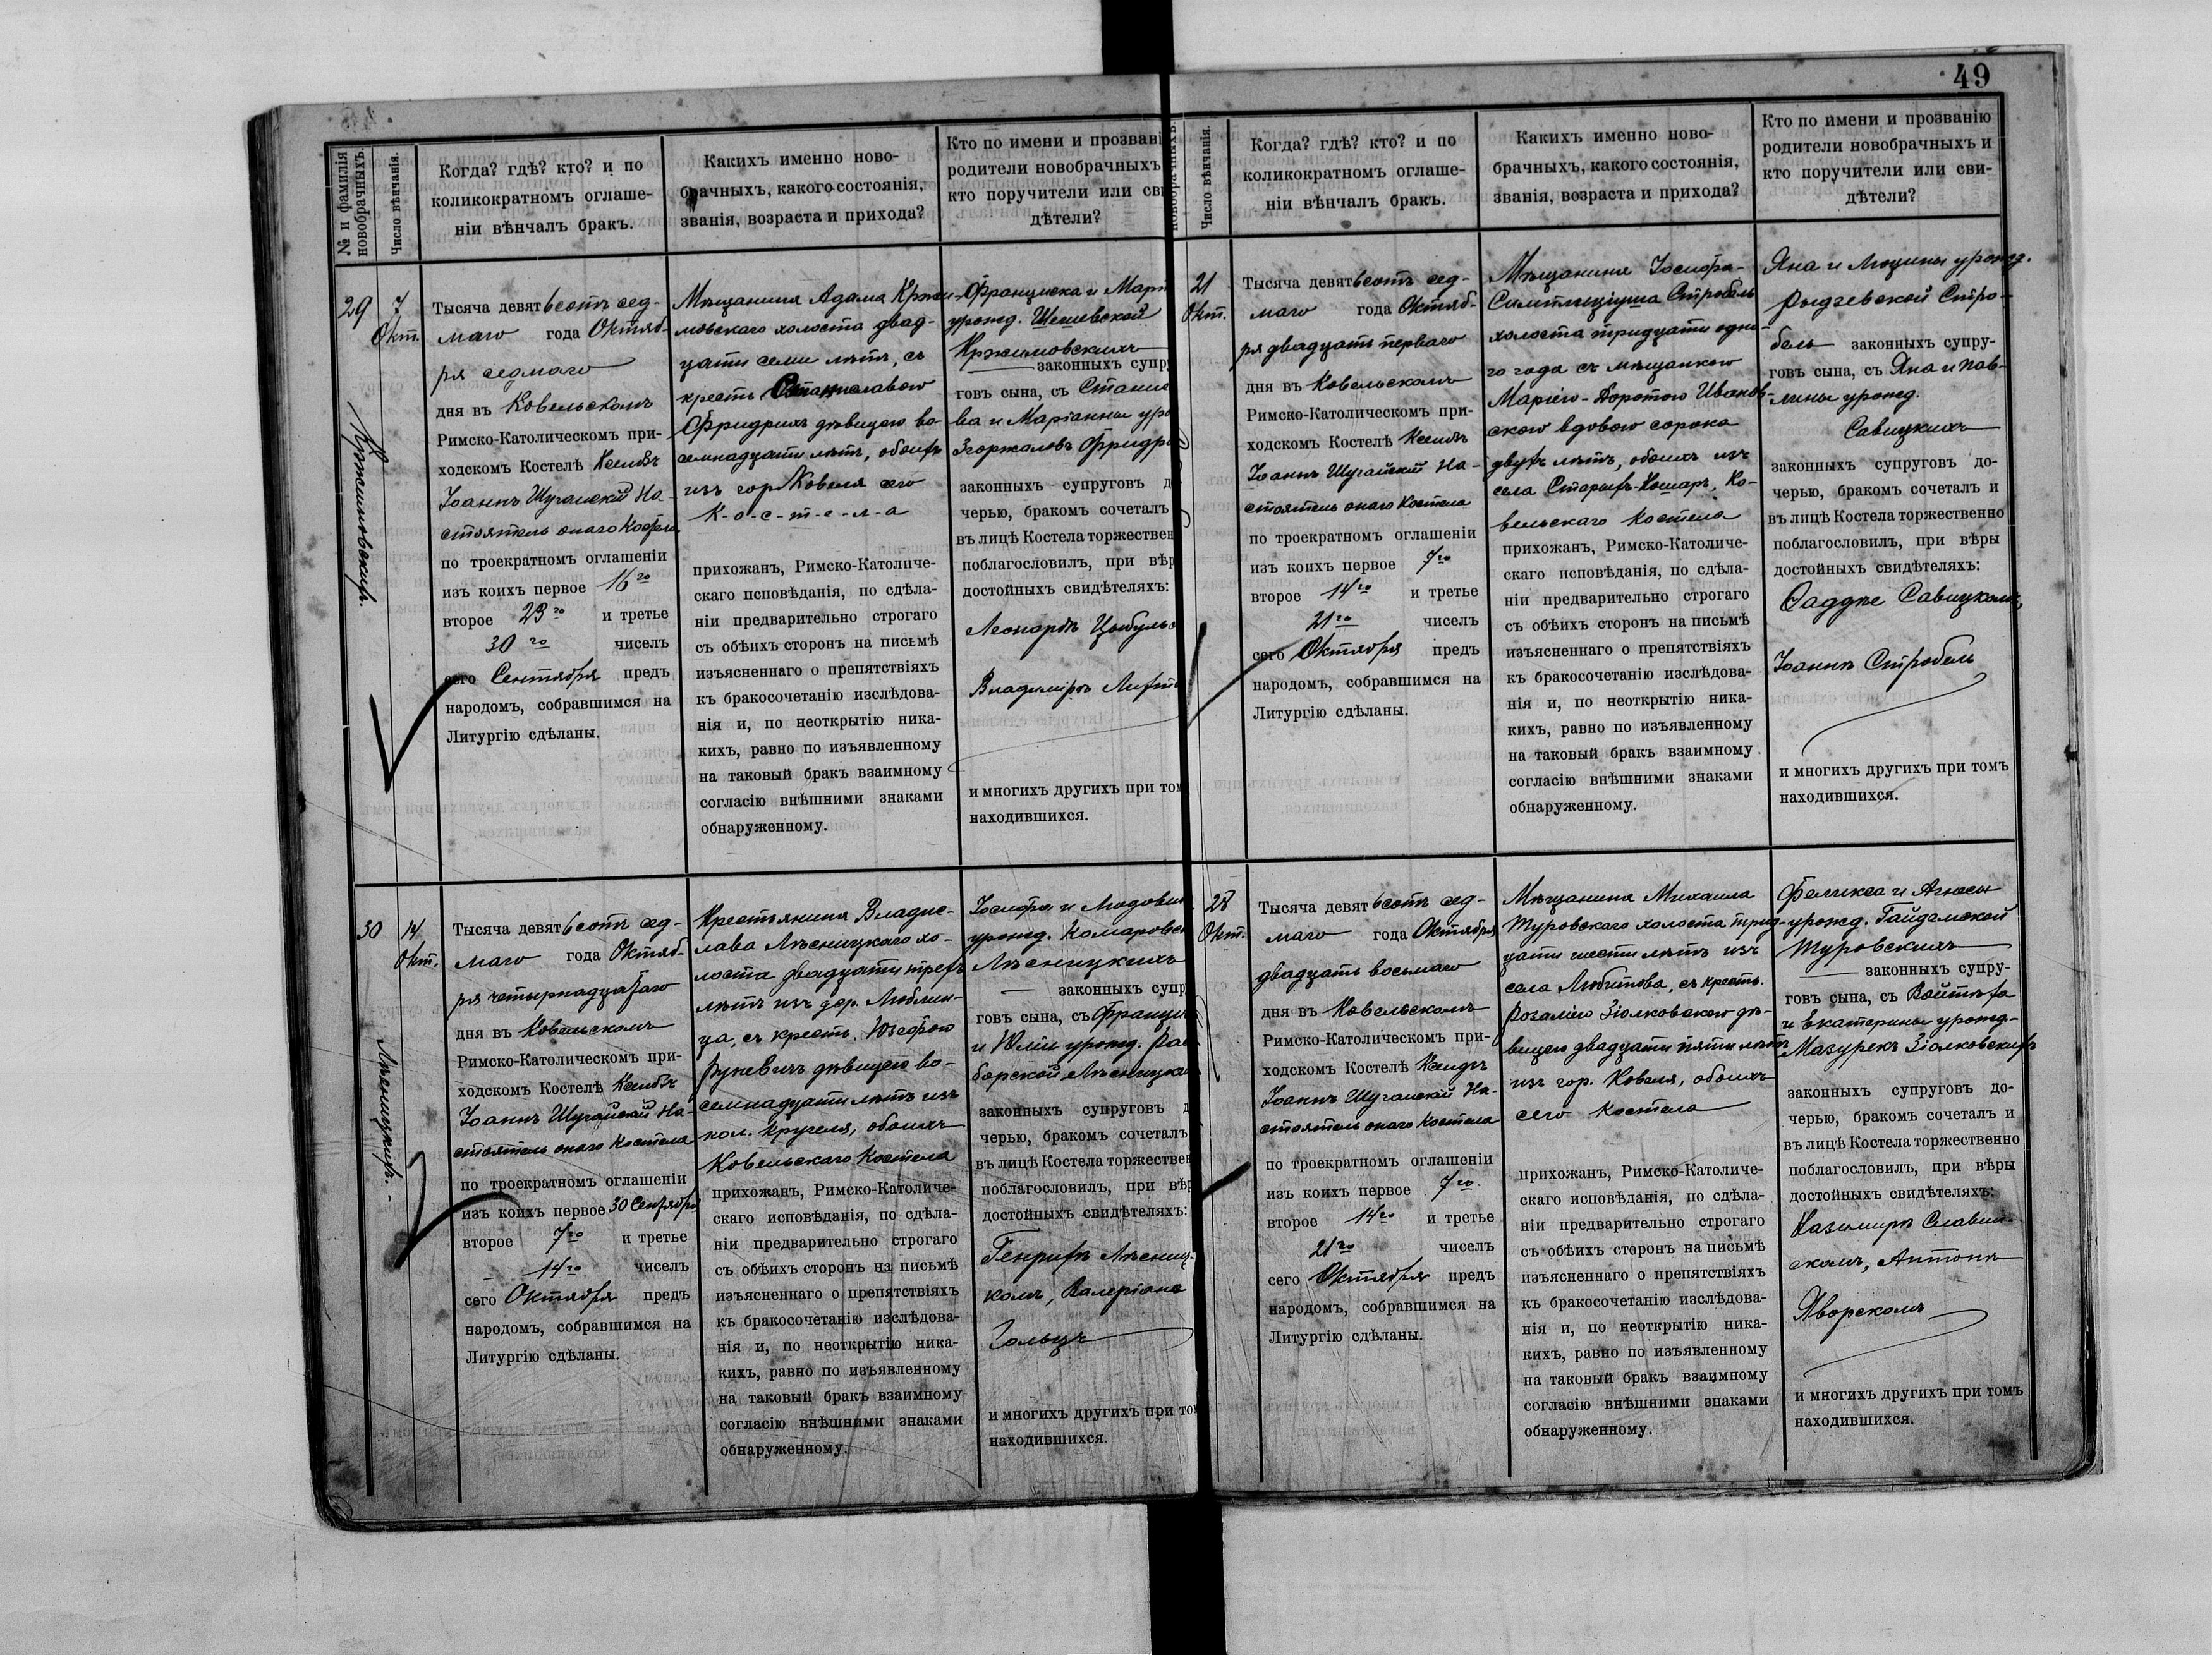 49
№ и фамилія новобрачныхъ.
Число вѣнчанія.
Когда? гдѣ? кто? и по
коликократномъ оглаше-
ніи вѣнчалъ бракъ.
Какихъ именно ново-
брачныхъ, какого состоянія,
званія, возраста и прихода?
Кто по имени и прозвані
родители новобрачныхъ
кто поручители или сви
дѣтели?
29
Кржимовскихъ.
7
Окт.
Тысяча девятьсотъ сед-
маго года Октяб-
ря седмаго
дня въ Ковельскомъ
Римско-Католическомъ при-
ходскомъ Костелѣ Ксендзъ
Іоаннъ Шугайскій На-
стоятель онаго Костела
по троекратномъ оглашеніи
изъ коихъ первое 16го
второе 23го и третье
30го чиселъ
сего Сентября предъ
народомъ, собравшимся на
Литургію сдѣланы.
Мѣщанина Адама Кржи-
мовскаго холоста двад-
цати семи лѣтъ, съ
крестъ Станиславою
Фридрихъ дѣвицею во-
семнадцати лѣтъ, обоихъ
изъ гор. Ковеля сего
К-о-с-т-е-л-а
прихожанъ, Римско-Католиче-
скаго исповѣданія, по сдѣла-
ніи предварительно строгаго
съ обѣихъ сторонъ на письмѣ
изъясненнаго о препятствіяхъ
къ бракосочетанію изслѣдова-
нія и, по неоткрытію ника-
кихъ, равно по изъявленному
на таковый бракъ взаимному
согласію внѣшними знаками
обнаруженному.
Франциска и Мар
урожд. Шешевской
Кржимовскихъ
законныхъ супру
говъ сына, съ Станисла
ва и Маріанны уро
Згоржаловъ Фридри
законныхъ супруговъ д
черью, бракомъ сочеталъ
въ лицѣ Костела торжествен
поблагословилъ, при вѣр
достойныхъ свидѣтеляхъ:
Леонардъ Цыбульс
Владиміръ
и многихъ другихъ при том
находившихся.
30
Лѣсницкихъ.-
14
Окт.
Тысяча девятьсотъ сед-
маго года Октяб-
ря четырнадцатаго
дня въ Ковельскомъ
Римско-Католическомъ при-
ходскомъ Костелѣ Ксендзъ
Іоаннъ Шугайскій На-
стоятель онаго Костела
по троекратномъ оглашеніи
изъ коихъ первое 30 Сентября
второе 7го и третье
14го чиселъ
сего Октября предъ
народомъ, собравшимся на
Литургію сдѣланы.
Крестьянина Владис-
лава Лѣсницкаго хо-
лоста двадцати трехъ
лѣтъ изъ дер. Люблин-
ца, съ крестъ. Юзефою
Рукевичъ дѣвицею во-
семнадцати лѣтъ изъ
кол. Кругеля, обоихъ
Ковельскаго Костела
прихожанъ, Римско-Католиче-
скаго исповѣданія, по сдѣла-
ніи предварительно строгаго
съ обѣихъ сторонъ на письмѣ
изъясненнаго о препятствіяхъ
къ бракосочетанію изслѣдова-
нія и, по неоткрытію ника-
кихъ, равно по изъявленному
на таковый бракъ взаимному
согласію внѣшними знаками
обнаруженному.
Іосифа и Людови
урожд. Комаровск
Лѣсницкихъ
законныхъ супр
говъ сына, съ Франци
и Юліи урожд.
борской Лѣсницка
законныхъ супруговъ д
черью, бракомъ сочеталъ
въ лицѣ Костела торжествен
поблагословилъ, при вѣр
достойныхъ свидѣтеляхъ:
Генрихъ Лѣсниц-
комъ, Валеріана
Гольцъ
и многихъ другихъ при том
находившихся.
новобрачныхъ.
Число вѣнчанія.
Когда? гдѣ? кто? и по
коликократномъ оглаше-
ніи вѣнчалъ бракъ.
Какихъ именно ново-
брачныхъ, какого состоянія,
званія, возраста и прихода?
Кто по имени и прозванію
родители новобрачныхъ и
кто поручители или сви-
дѣтели?
21
Окт.
Тысяча девятьсотъ сед-
маго года Октяб-
ря двадцать перваго
дня въ Ковельскомъ
Римско-Католическомъ при-
ходскомъ Костелѣ Ксендзъ
Іоаннъ Шугайскій На-
стоятель онаго Костела
по троекратномъ оглашеніи
изъ коихъ первое 7го
второе 14го и третье
21го чиселъ
сего Октября предъ
народомъ, собравшимся на
Литургію сдѣланы.
Мѣщанина Іосифа-
Симплиціуша Стробель
холоста тридцати одно-
го года съ мѣщанкою
Маріею-Доротою Иванов-
скою вдовою сорока
двухъ лѣтъ, обоихъ изъ
села Старыхъ-Кошаръ, Ко-
вельскаго Костела
прихожанъ, Римско-Католиче-
скаго исповѣданія, по сдѣла-
ніи предварительно строгаго
съ обѣихъ сторонъ на письмѣ
изъясненнаго о препятствіяхъ
къ бракосочетанію изслѣдова-
нія и, по неоткрытію ника-
кихъ, равно по изъявленному
на таковый бракъ взаимному
согласію внѣшними знаками
обнаруженному.
Яна и Люцины урожд.
Рыдзевской Стро-
бель законныхъ супру-
говъ сына, съ Яна и Пав-
лины урожд.
Савицкихъ
законныхъ супруговъ до-
черью, бракомъ сочеталъ и
въ лицѣ Костела торжественно
поблагословилъ, при вѣры
достойныхъ свидѣтеляхъ:
Фаддѣе Савицкомъ,
Іоаннъ Стробель
и многихъ другихъ при томъ
находившихся.
28
Окт.
Тысяча девятьсотъ сед-
маго года Октября
двадцать восьмаго
дня въ Ковельскомъ
Римско-Католическомъ при-
ходскомъ Костелѣ Ксендзъ
Іоаннъ Шугайскій На-
стоятель онаго Костела
по троекратномъ оглашеніи
изъ коихъ первое 7го.
второе 14го и третье
21го чиселъ
сего Октября предъ
народомъ, собравшимся на
Литургію сдѣланы.
Мѣщанина Михаила
Туровскаго холоста трид-
цати шести лѣтъ изъ
села Любитова, съ крестъ.
Розаліею Зіолковскою дѣ-
вицею двадцати пяти лѣтъ
изъ гор. Ковеля, обоихъ
сего Костела
прихожанъ, Римско-Католиче-
скаго исповѣданія, по сдѣла-
ніи предварительно строгаго
съ обѣихъ сторонъ на письмѣ
изъясненнаго о препятствіяхъ
къ бракосочетанію изслѣдова-
нія и, по неоткрытію ника-
кихъ, равно по изъявленному
на таковый бракъ взаимному
согласію внѣшними знаками
обнаруженному.
Феликса и Агнесы
урожд. Гайдамской
Туровскихъ
законныхъ супру-
говъ сына, съ Войтѣха
и Екатерины урожд.
Мазурекъ Зіолковскихъ
законныхъ супруговъ до-
черью, бракомъ сочеталъ и
въ лицѣ Костела торжественно
поблагословилъ, при вѣры
достойныхъ свидѣтеляхъ:
Казимиръ Славин-
скомъ, Антонъ
Яворскомъ
и многихъ другихъ при томъ
находившихся.